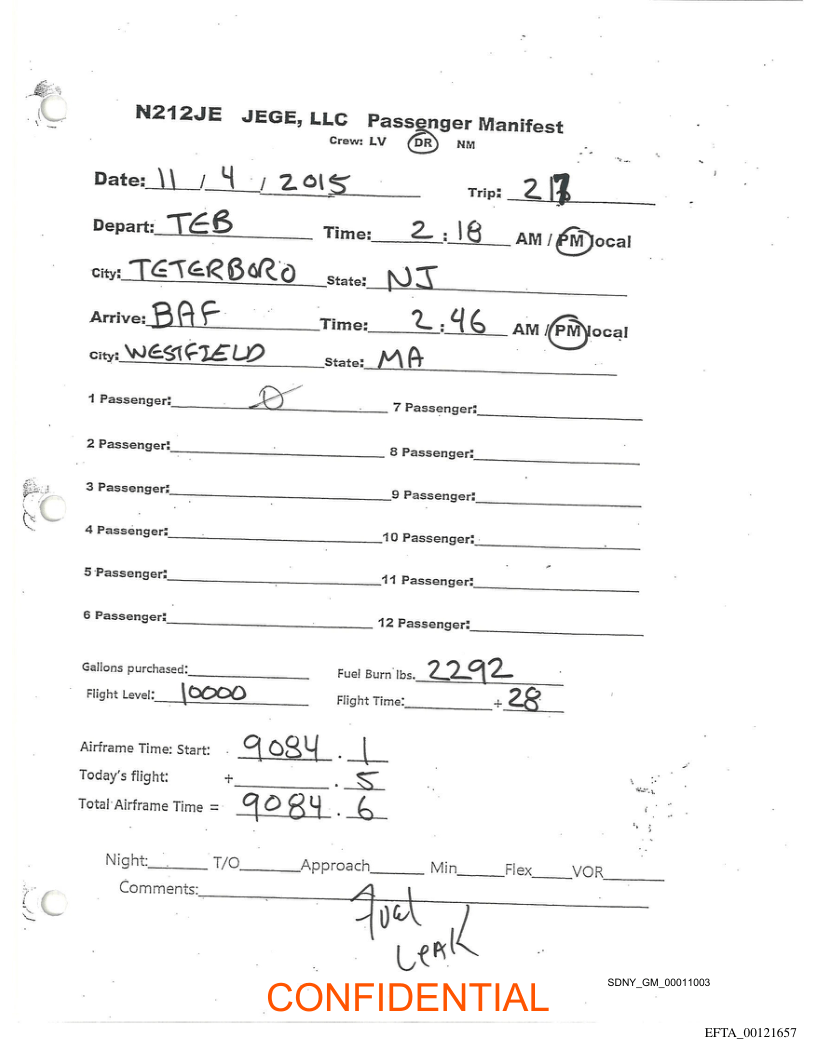 N212JE JEGE, LLC Passenger Manifest
Crew: LV DR NM
Date: 11 / 4 / 2015 Trip:
Depart: TEB Time: 2:18 AM / PM local
City: TETERBORO State: NJ
Arrive: BAF Time: 2:46 AM / PM local
City: WESTFIELD State: MA
1 Passenger: 0 7 Passenger:
2 Passenger: 8 Passenger:
3 Passenger: 9 Passenger:
4 Passenger: 10 Passenger:
5 Passenger: 11 Passenger:
6 Passenger: 12 Passenger:
Gallons purchased: Fuel Burn lbs. 2292
Flight Level: 10000 Flight Time: + 28
Airframe Time: Start: 9084 . 1
Today's flight: + . 5
Total Airframe Time = 9084 . 6
Night: T/O Approach Min Flex VOR
Comments:
Fuel
Leak
SDNY_GM_00011003
CONFIDENTIAL
EFTA_00121657